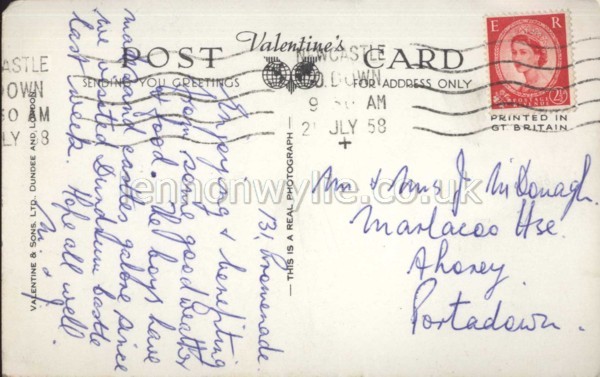 POST Valentine's CARD
SENDING YOU GREETINGS FOR ADDRESS ONLY
NEWCASTLE
CO. DOWN
9 30 AM
2 JLY 58
ASTLE
OWN
30 AM
LY 58
E R
POSTAGE
2½
PRINTED IN
GT BRITAIN
131, Promenade.
Enjoying & benefiting
from some good weather
& food. The boys have
made sand castles galore since
we visited Dundrum castle
last week. Hope all well
M. & J.
Mr & Mrs J. McDonagh.
Marlacoo Hse.
Ahorey.
Portadown.
— THIS IS A REAL PHOTOGRAPH —
VALENTINE & SONS, LTD. DUNDEE AND LONDON
lennonwylie.co.uk